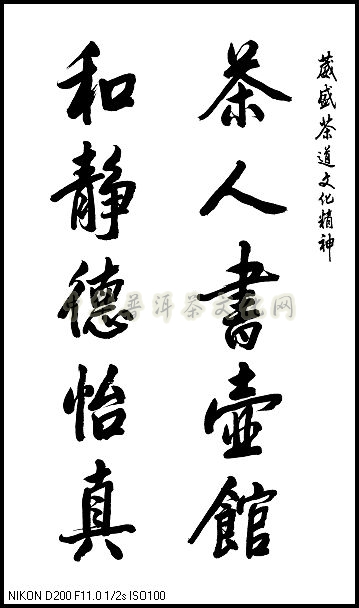 葳盛茶道文化精神
茶人書壺館
和靜德怡真
中国普洱茶文化网
NIKON D200 F11.0 1/2s ISO100